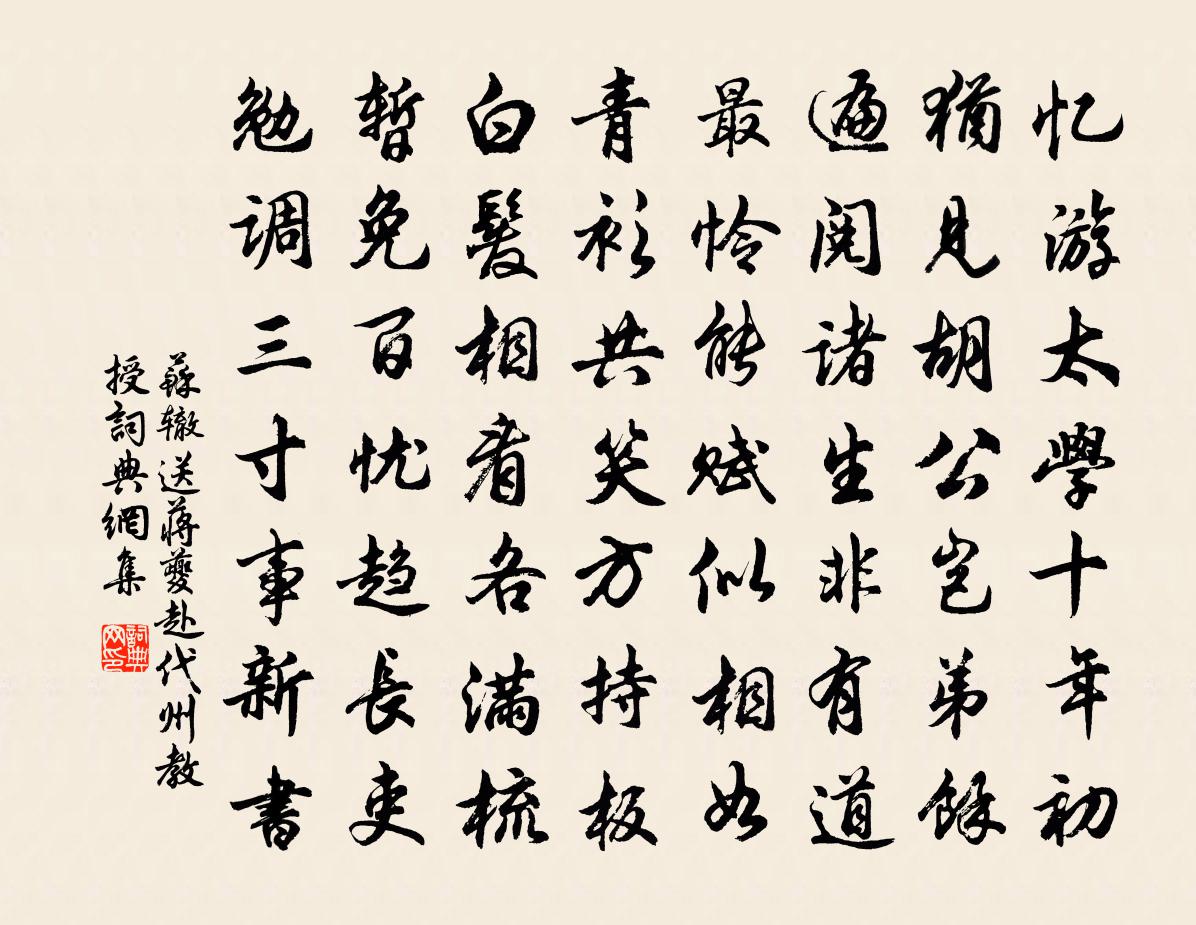 忆游太學十年初
猶見胡公岂弟餘
遍阅诸生非有道
最怜能赋似相如
青衫共笑方持板
白髮相看各满梳
暂免百忧趋長吏
勉调三寸事新書
蘇辙送蔣夔赴代州教
授詞典網集
詞典
网印